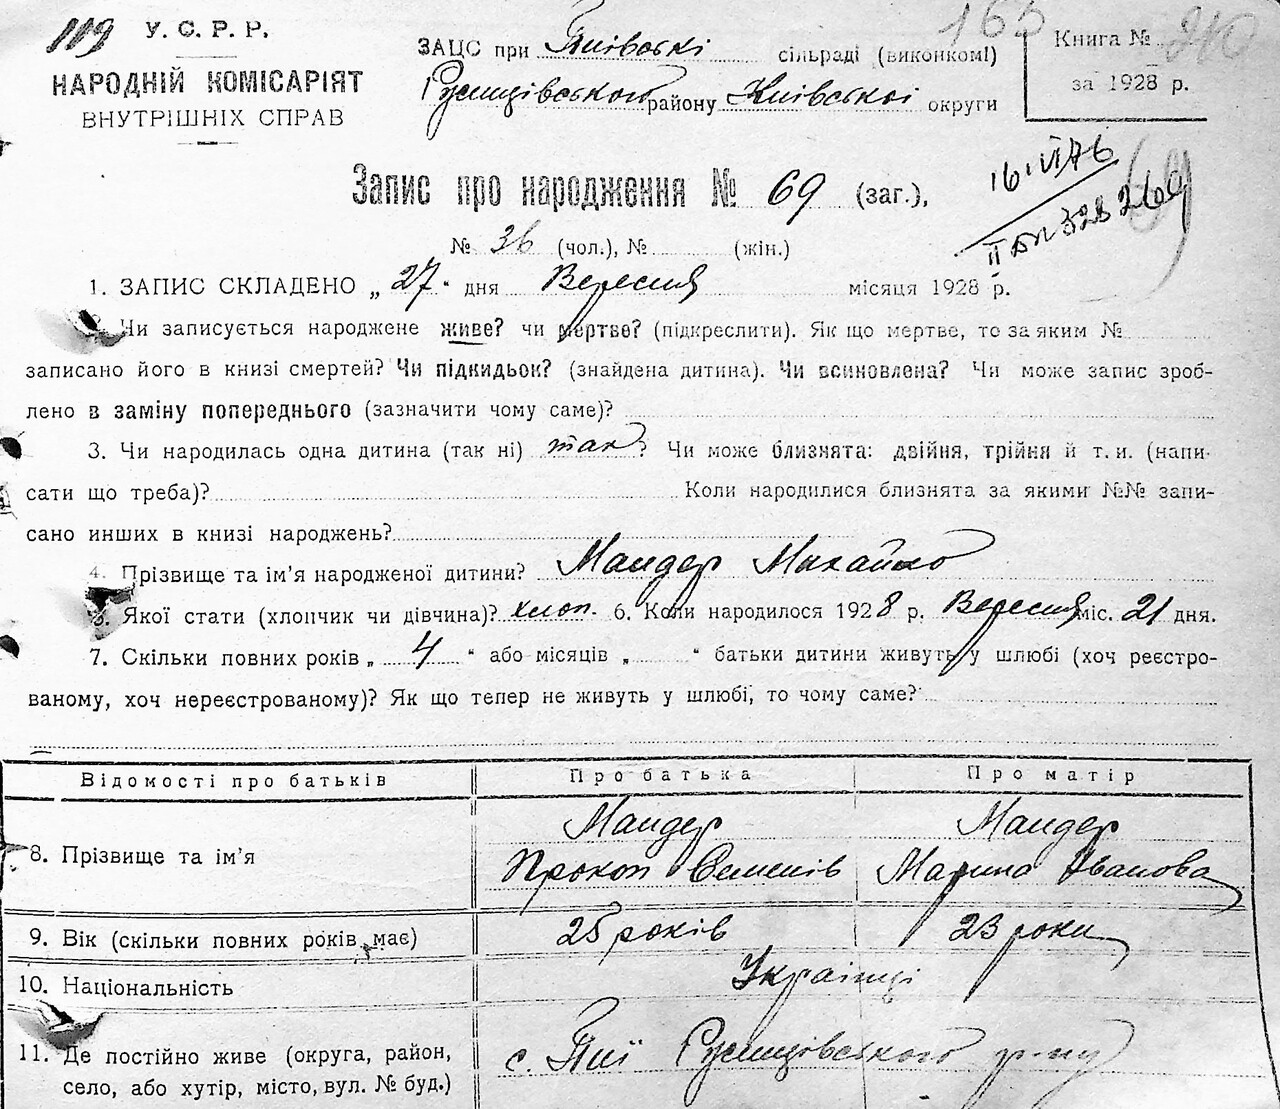 119
У. С. Р. Р.
НАРОДНІЙ КОМІСАРІЯТ
ВНУТРІШНІХ СПРАВ
163
ЗАЦС при Пиївські сільраді (виконкомі)
Ржищівського району Київської округи
Книга №
за 1928 р.
16 VI 76
II БП 328 264
69
Запис про народження № 69 (заг.),
№ 36 (чол.), № (жін.)
1. ЗАПИС СКЛАДЕНО „ 27 “ дня Вересня місяця 1928 р.
Чи записується народжене живе? чи мертве? (підкреслити). Як що мертве, то за яким №
записано його в книзі смертей? Чи підкидьок? (знайдена дитина). Чи всиновлена? Чи може запис зроб-
лено в заміну попереднього (зазначити чому саме)?
3. Чи народилась одна дитина (так ні) так? Чи може близнята: двійня, трійня й т. и. (напи-
сати що треба)? Коли народилися близнята за якими №№ запи-
сано инших в книзі народжень?
4. Прізвище та ім’я народженої дитини? Мандер Михайло
5. Якої стати (хлопчик чи дівчина)? хлоп. 6. Коли народилося 1928 р. Вересня міс. 21 дня.
7. Скільки повних років „ 4 “ або місяців „ “ батьки дитини живуть у шлюбі (хоч реєстро-
ваному, хоч нереєстрованому)? Як що тепер не живуть у шлюбі, то чому саме?
Відомості про батьків Про батька Про матір
8. Прізвище та ім’я Мандер Прокоп Семенів Мандер Марина Іванова
9. Вік (скільки повних років має) 25 років 23 роки
10. Національність Українці
11. Де постійно живе (округа, район, с. Пиї Ржищівського р-ну
село, або хутір, місто, вул. № буд.)